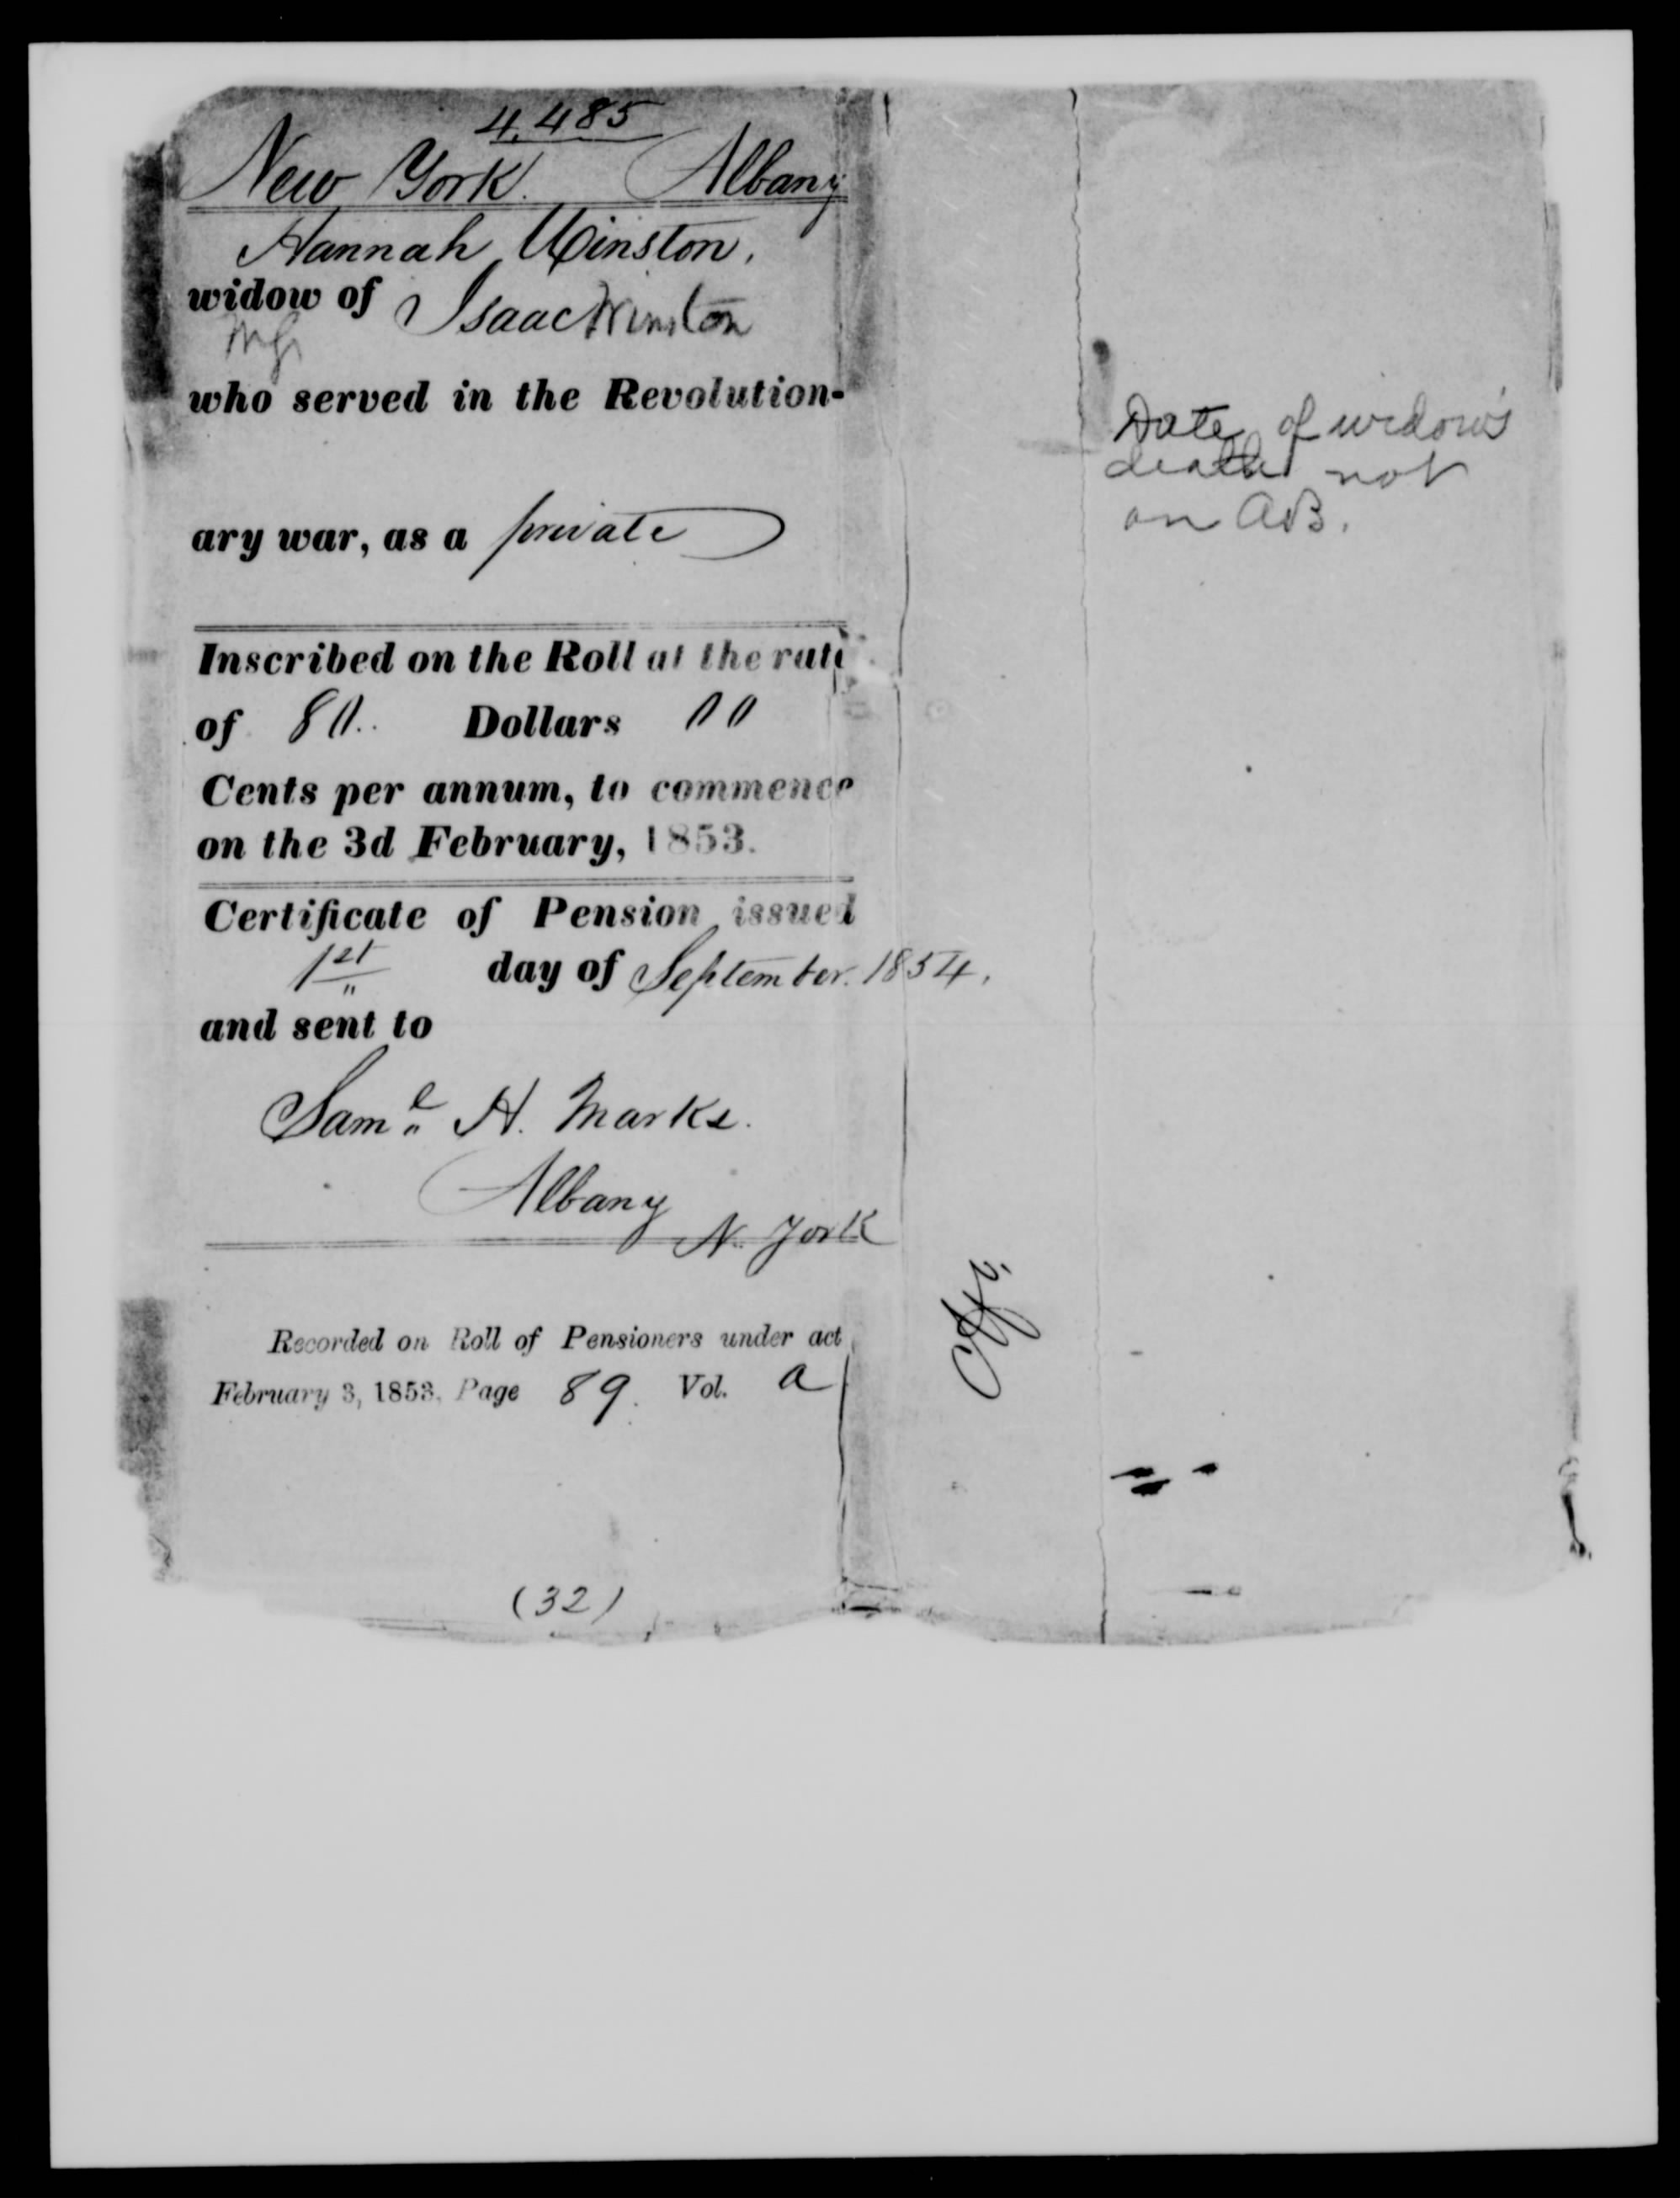 4,485
New York. Albany
Hannah Winston,
widow of Isaac Winston
who served in the Revolution-
ary war, as a private
Inscribed on the Roll at the rate
of 80.. Dollars 00
Cents per annum, to commence
on the 3d February, 1853.
Certificate of Pension issued
1st day of September. 1854.
and sent to
Saml H. Marks.
Albany
N. York
Recorded on Roll of Pensioners under act
February 3, 1853, Page 89. Vol. A
(32)
Date of widow's
death not
on AB.